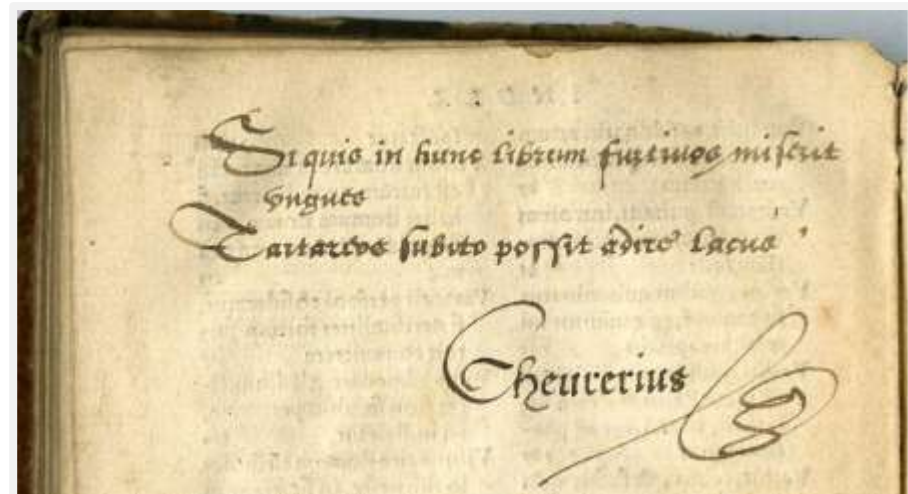 Si quis in hunc librum furtiuos miserit
vngues
Tartareos subito possit adire lacus
Theurerius